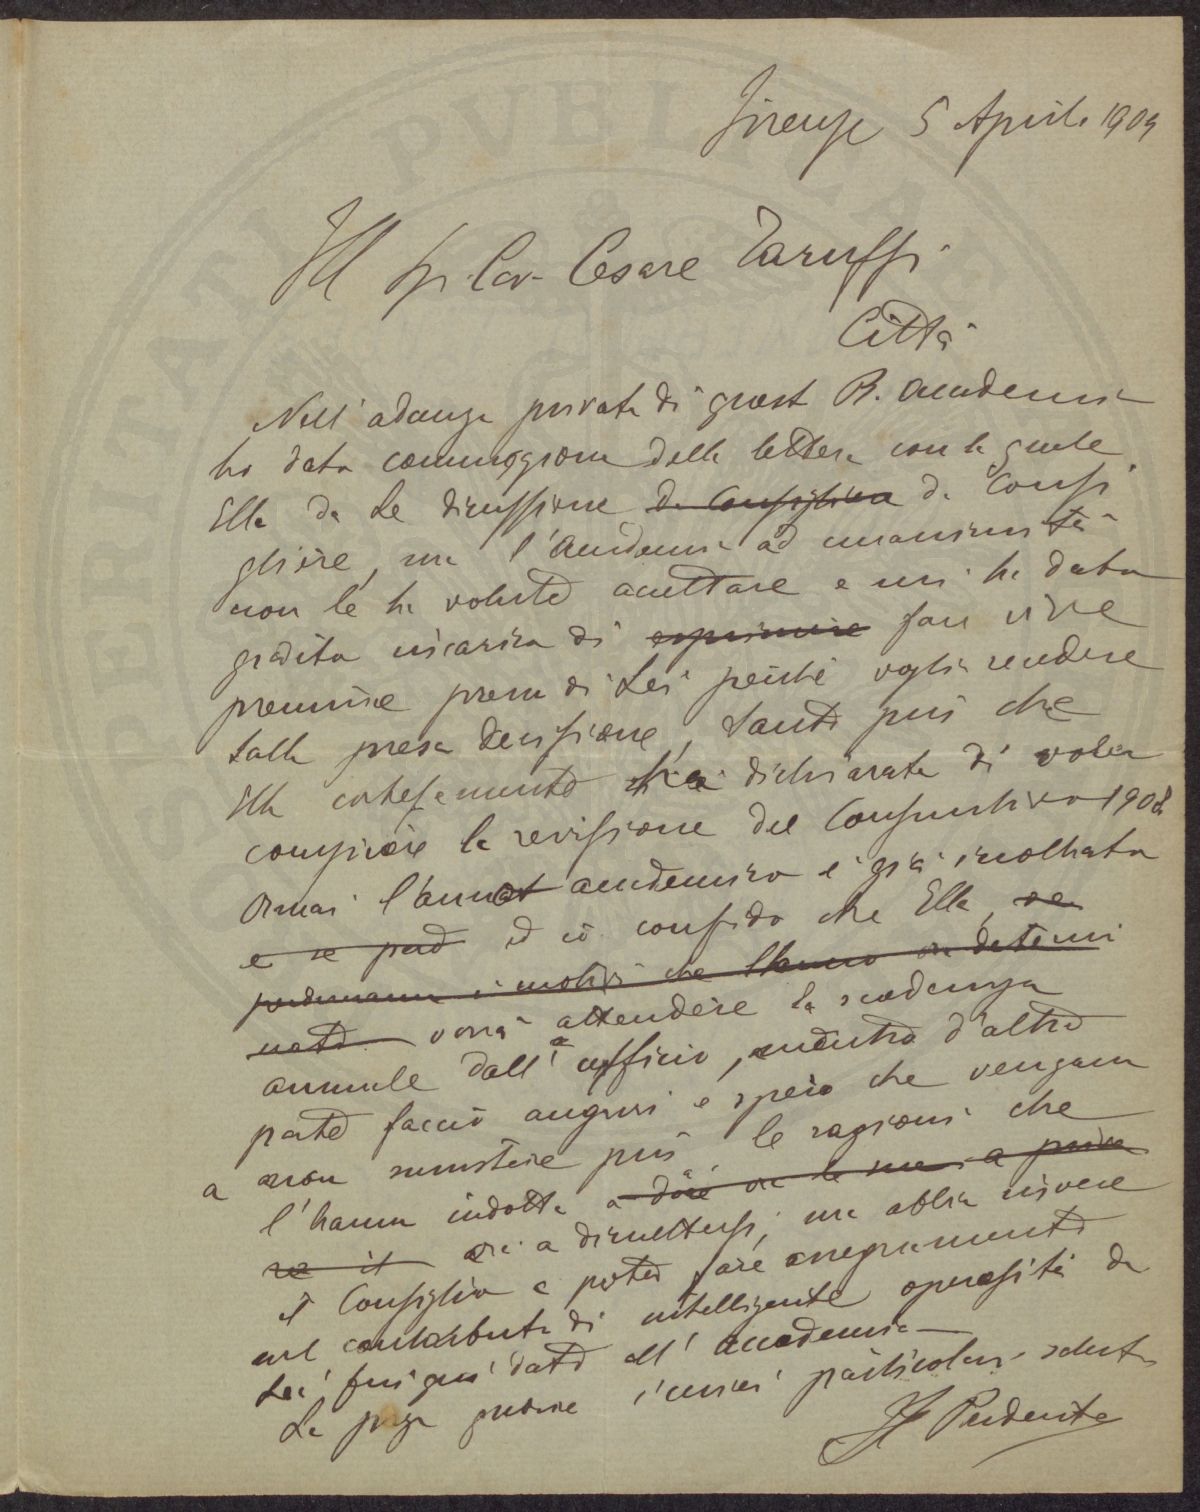 Firenze 5 Aprile 1909
Ill Sig. Cav. Cesare Taruffi
Città
Nell'adunza privata di quest R. Accademia
ho data comunicazione della lettera con la quale
Ella da le dimissione da Consigliera da Consi
gliere, ma l'Accademia ad unanimità
non le ha volute accettare e mi ha data
gradita incarica di esprimere fare vive
premure presso di Lei perchè voglia recedere
dalla presa decisione, tanto più che
Ella cortesemente ha dichiarata di voler
compiere la revisione del Consuntivo 1908
Ormai l'anno accademico è già inoltrata
e se però ed io confido che Ella, se
permanuna i motivi che l'hanno ora determi
nato vorrà attendere la scadenza
annuale dall'ufficio, mentre d'altra
parte faccio auguri e spero che vengano
a non sussistere più le ragioni che
l'hanno indotta a dare ora le sue a prende
re il ora a dimettersi, ma abbia rivere
il Consiglio a poter fare assegnamento
nel contributo di intelligente operosità da
Lei fin qui dato all'Accademia
La prego gradire i sensi particolare saluto
Il Presidente